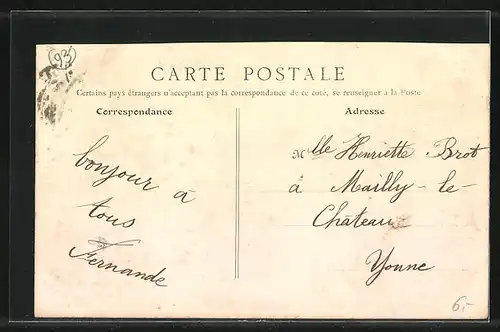 93
CARTE POSTALE
Certains pays étrangers n'acceptant pas la correspondance de ce coté, se renseigner à la Poste
Correspondance
bonjour à
tous
Fernande
Adresse
Mlle Henriette Brot
à Mailly-le-
Château
Yonne
6,-